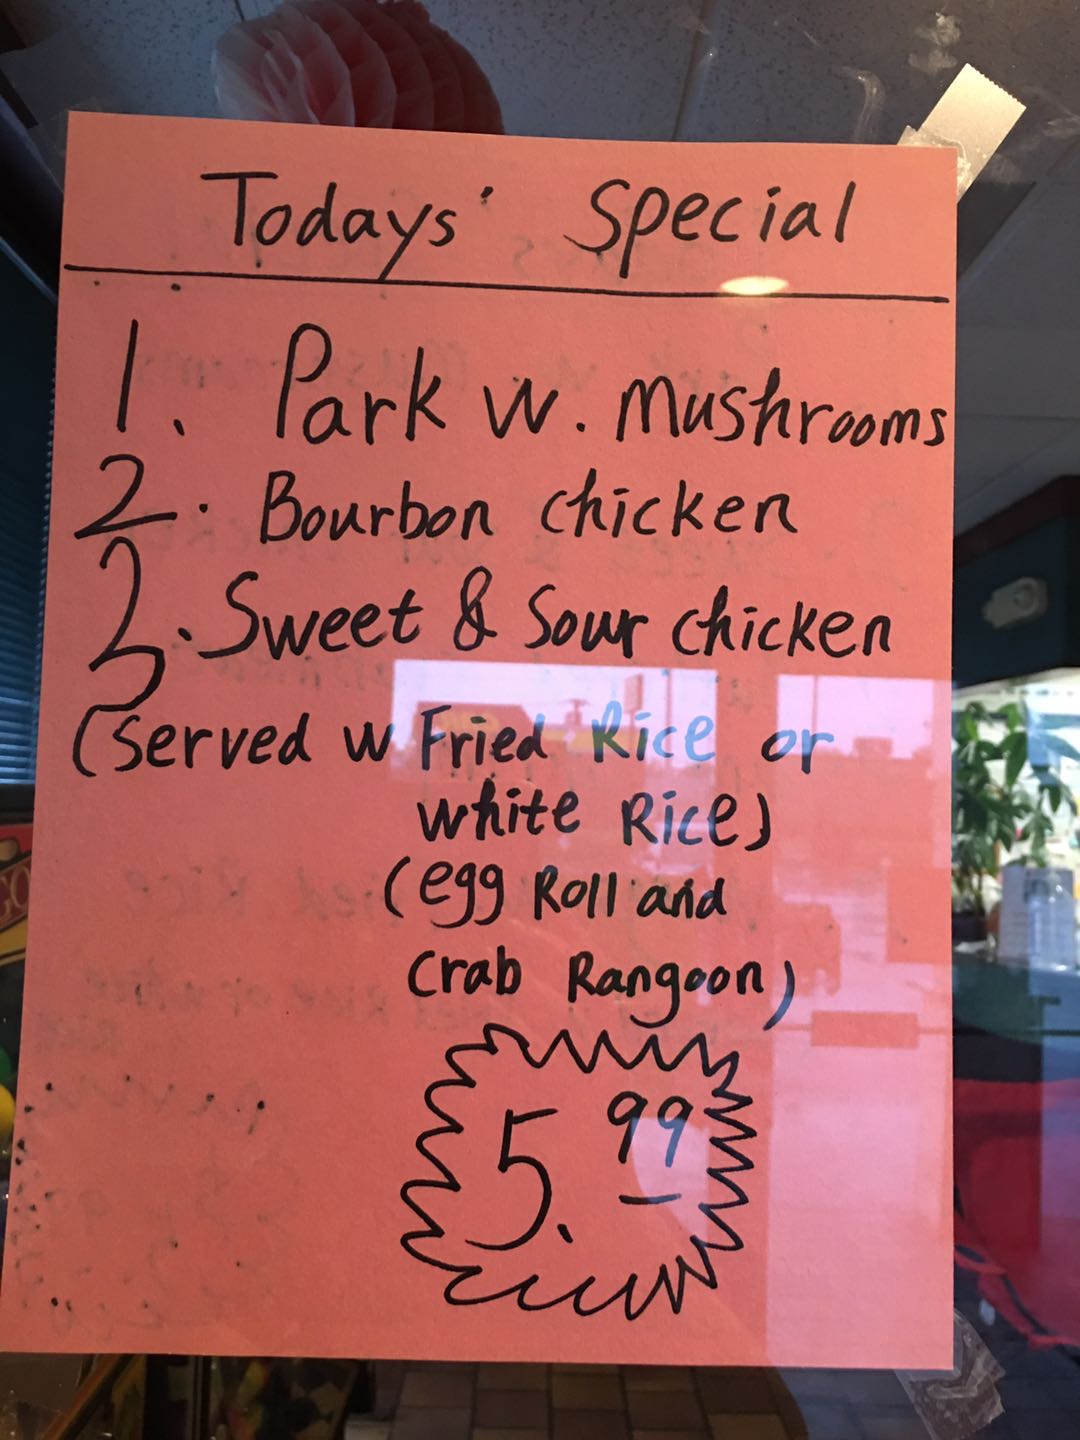 Todays' Special
1. Park w. Mushrooms
2. Bourbon chicken
3. Sweet & Sour chicken
(served w Fried Rice or
white Rice)
(egg Roll and
Crab Rangoon)
5.99